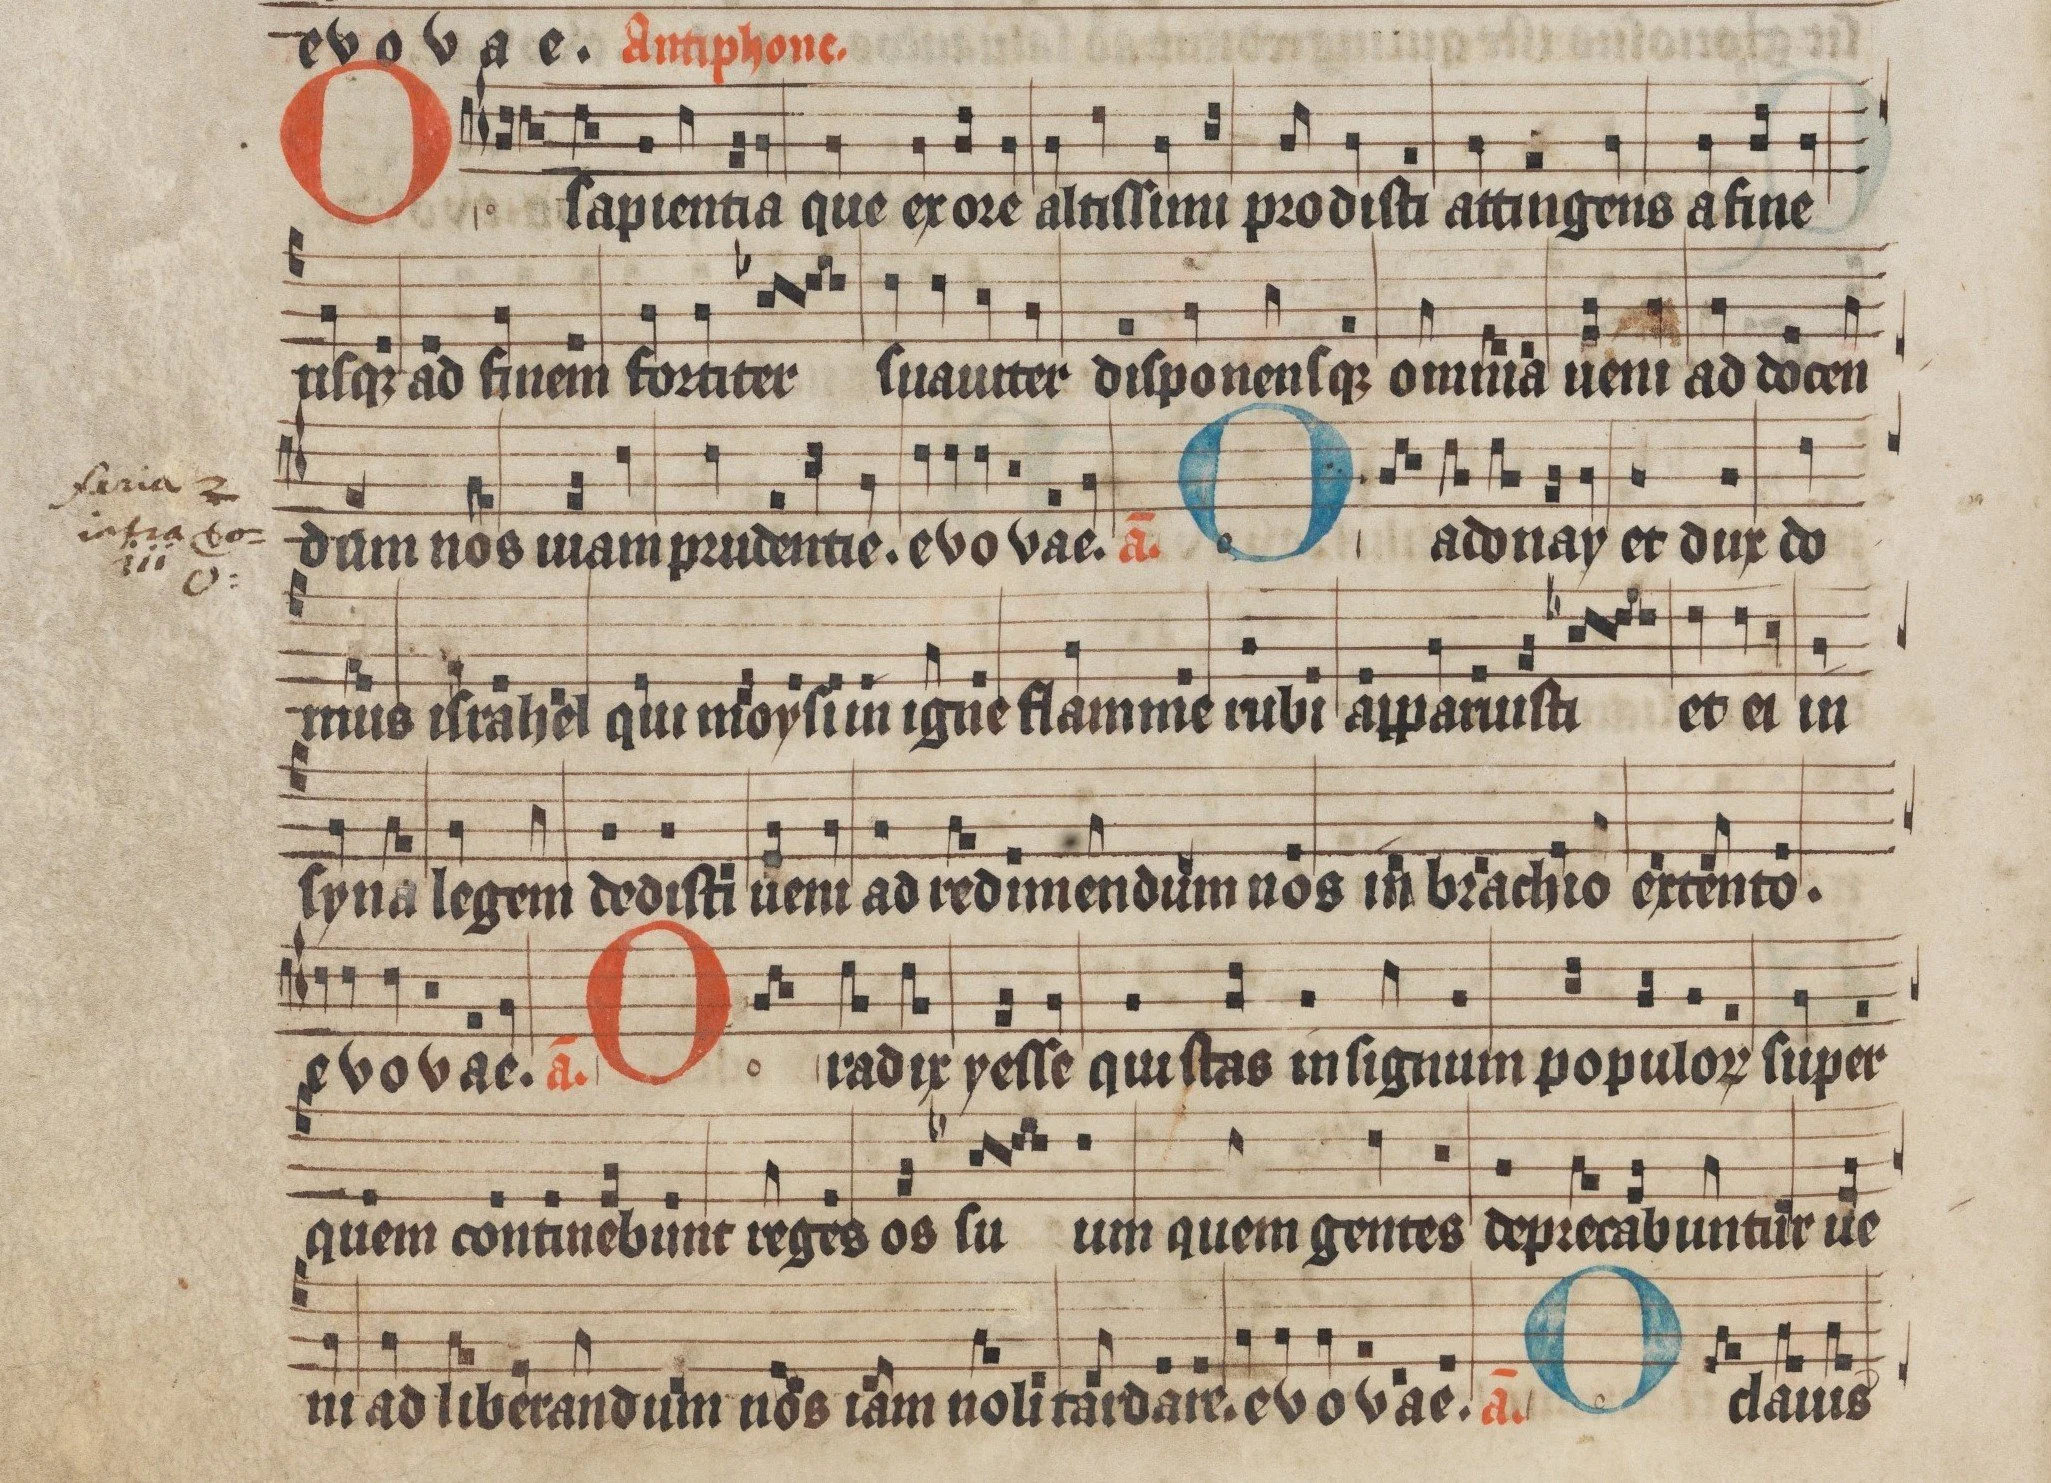 evovae. Antiphone.
O sapientia que ex ore altissimi prodisti attingens a fine
usqꝫ ad finem fortiter suauiter disponensqꝫ omnia ueni ad docen
dum nos uiam prudentie. evovae. ā. O adonay et dux do
feria 2
intra
iii
O:
mus israhel qui moysi in igne flamme rubi apparuisti et ei in
syna legem dedisti ueni ad redimendum nos in brachio extento.
evovae. ā. O radix yesse qui stas in signum populoꝝ super
quem continebunt reges os suum quem gentes deprecabuntur ue
ni ad liberandum nos iam noli tardare. evovae. ā. O clauis